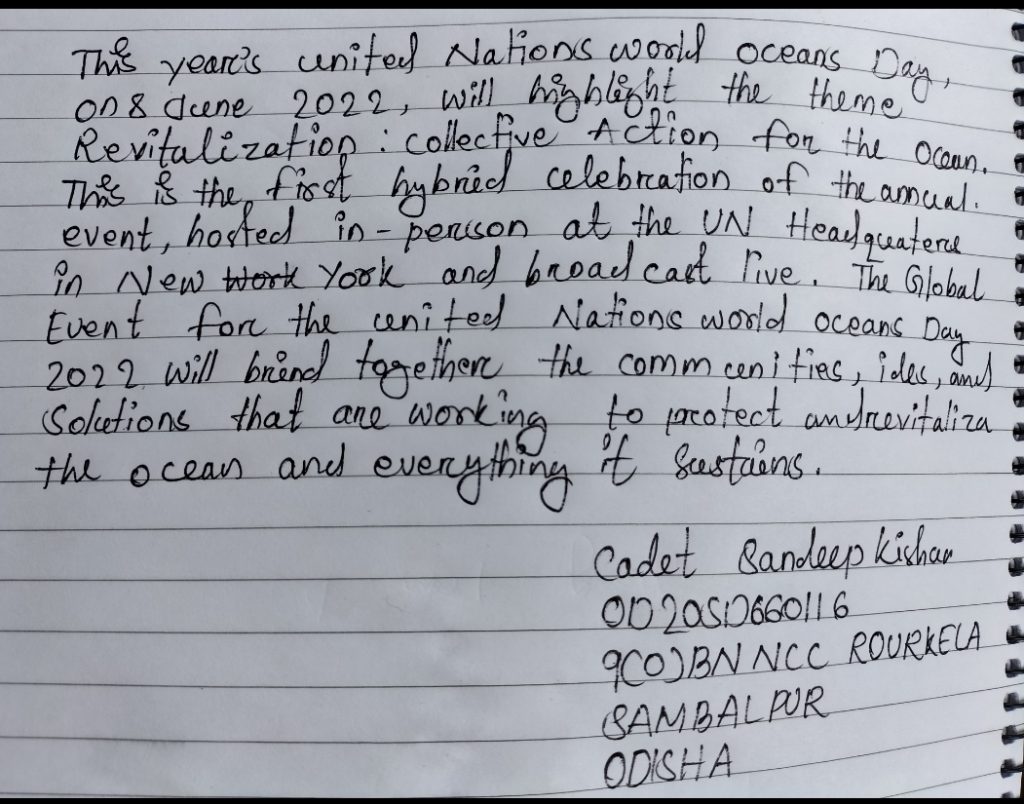 This year's united Nations world oceans Day,
on 8 June 2022, will highlight the theme
Revitalization : collective Action for the ocean.
This is the first hybrid celebration of the annual.
event, hosted in-person at the UN Headquaters
in New Work York and broad cast live. The Global
Event for the united Nations world oceans Day
2022 will briend together the communities, ides, and
Solutions that are working to protect and revitaliza
the ocean and everything it sustains.
Cadet Sandeep Kishan
OD20SD660116
9(O)BN NCC ROURKELA
SAMBALPUR
ODISHA